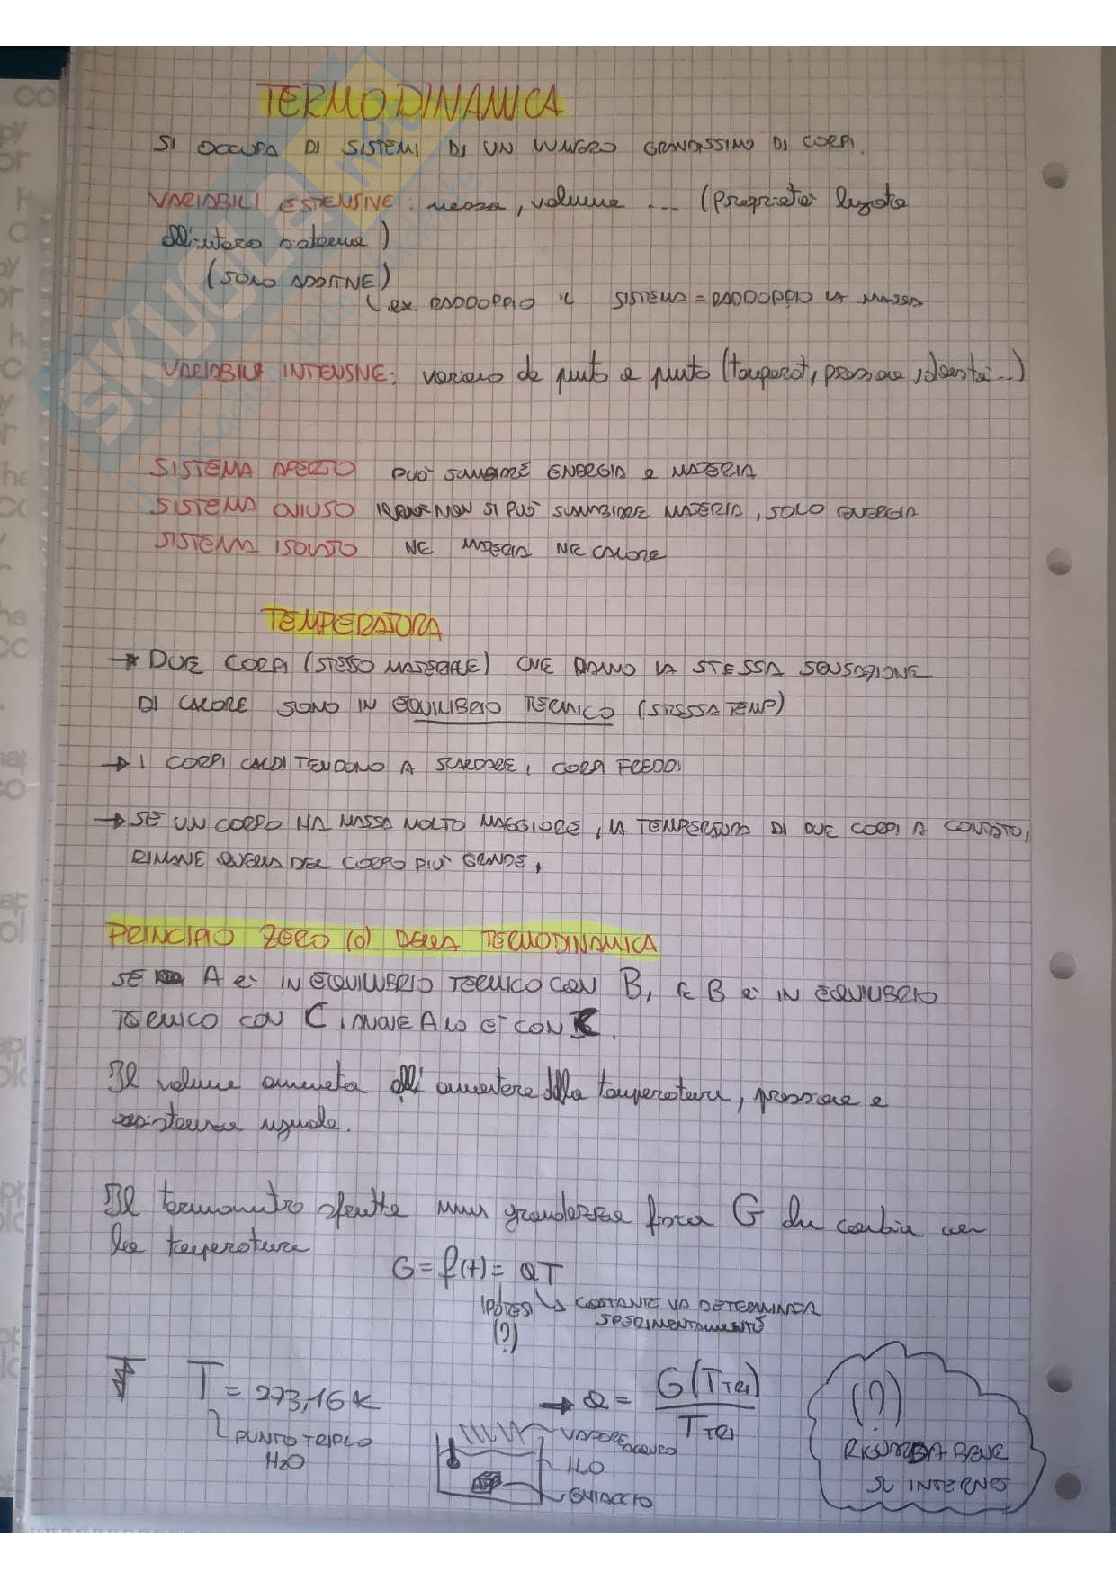 TERMODINAMICA
SI OCCUPA DI SISTEMI DI UN NUMERO GRANDISSIMO DI CORPI.
VARIABILI ESTENSIVE: massa, volume ... (proprietà legate
all'intero sistema)
(SONO ADDITIVE)
ex RADDOPPIO IL SISTEMA = RADDOPPIO LA MASSA
VARIABILI INTENSIVE: variano da punto a punto (temperat, pressione, densità...)
SISTEMA APERTO PUÒ SCAMBIARE ENERGIA e MATERIA
SISTEMA CHIUSO NON SI PUÒ SCAMBIARE MATERIA, SOLO ENERGIA
SISTEMA ISOLATO NE MATERIA NE CALORE
TEMPERATURA
→ DUE CORPI (STESSO MATERIALE) CHE DANNO LA STESSA SENSAZIONE
DI CALORE SONO IN EQUILIBRIO TERMICO (STESSA TEMP)
→ I CORPI CALDI TENDONO A SCALDARE I CORPI FREDDI
→ SE UN CORPO HA MASSA MOLTO MAGGIORE, LA TEMPERATURA DI DUE CORPI A CONTATTO,
RIMANE QUELLA DEL CORPO PIÙ GRANDE,
PRINCIPIO ZERO (0) DELLA TERMODINAMICA
SE A è IN EQUILIBRIO TERMICO CON B, E B è IN EQUILIBRIO
TERMICO CON C, A LO È CON C.
Il volume aumenta all'aumentare della temperatura, pressione e
resistenza uguale.
Il termometro sfrutta una grandezza fisica G che cambia con
la temperatura
G = f(t) = aT
IPOTESI → COSTANTE VA DETERMINATA
(?) SPERIMENTALMENTE
T = 273,16 K
PUNTO TRIPLO
H2O
→ a = G(TTRI) / TTRI
VAPORE ACQUEO
H2O
GHIACCIO
(?)
RIGUARDA BENE
SU INTERNET
SKUOLA.net